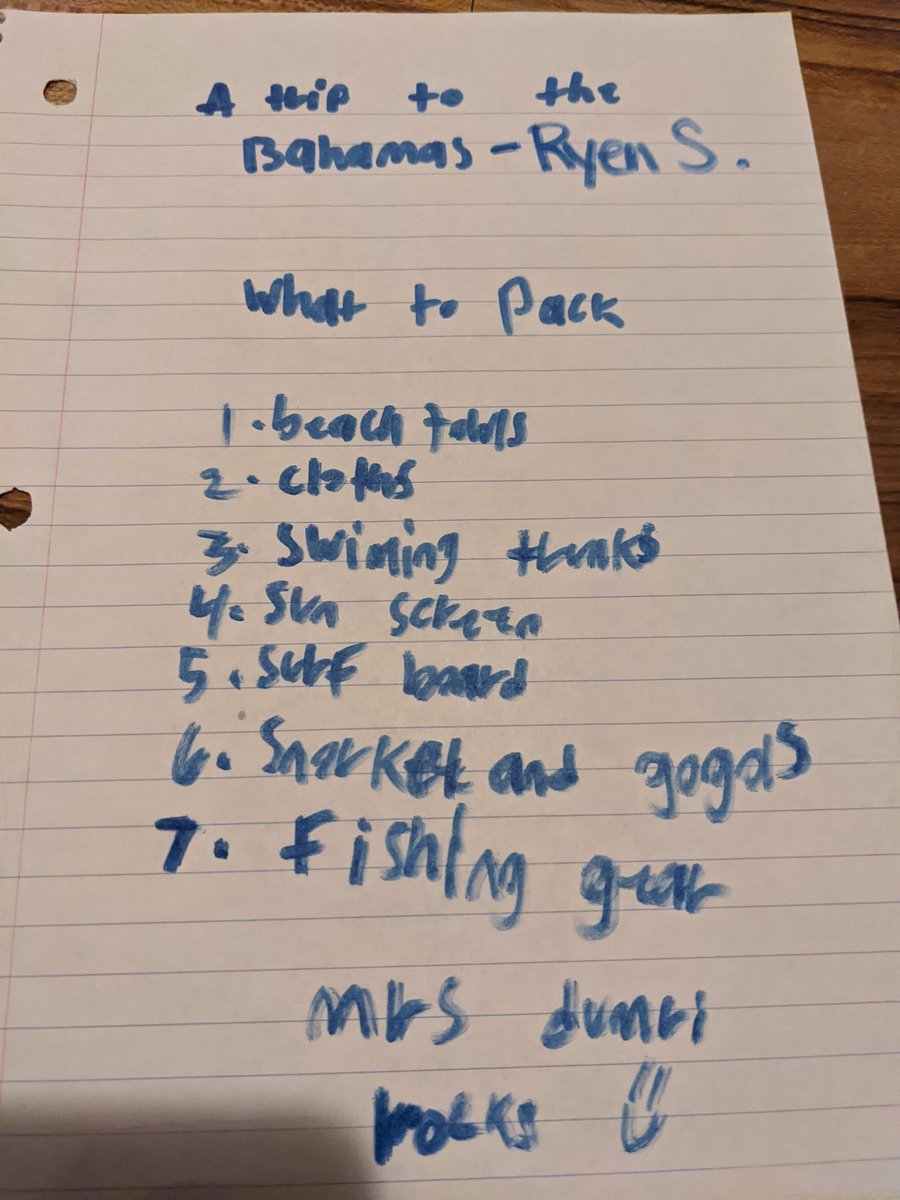 A trip to the
Bahamas - Ryen S.
What to Pack
1. beach towls
2. cloths
3. Swiming thunks
4. Sun screen
5. Surf board
6. Snorkel and gogols
7. Fishing gear
mrs dumri
rocks